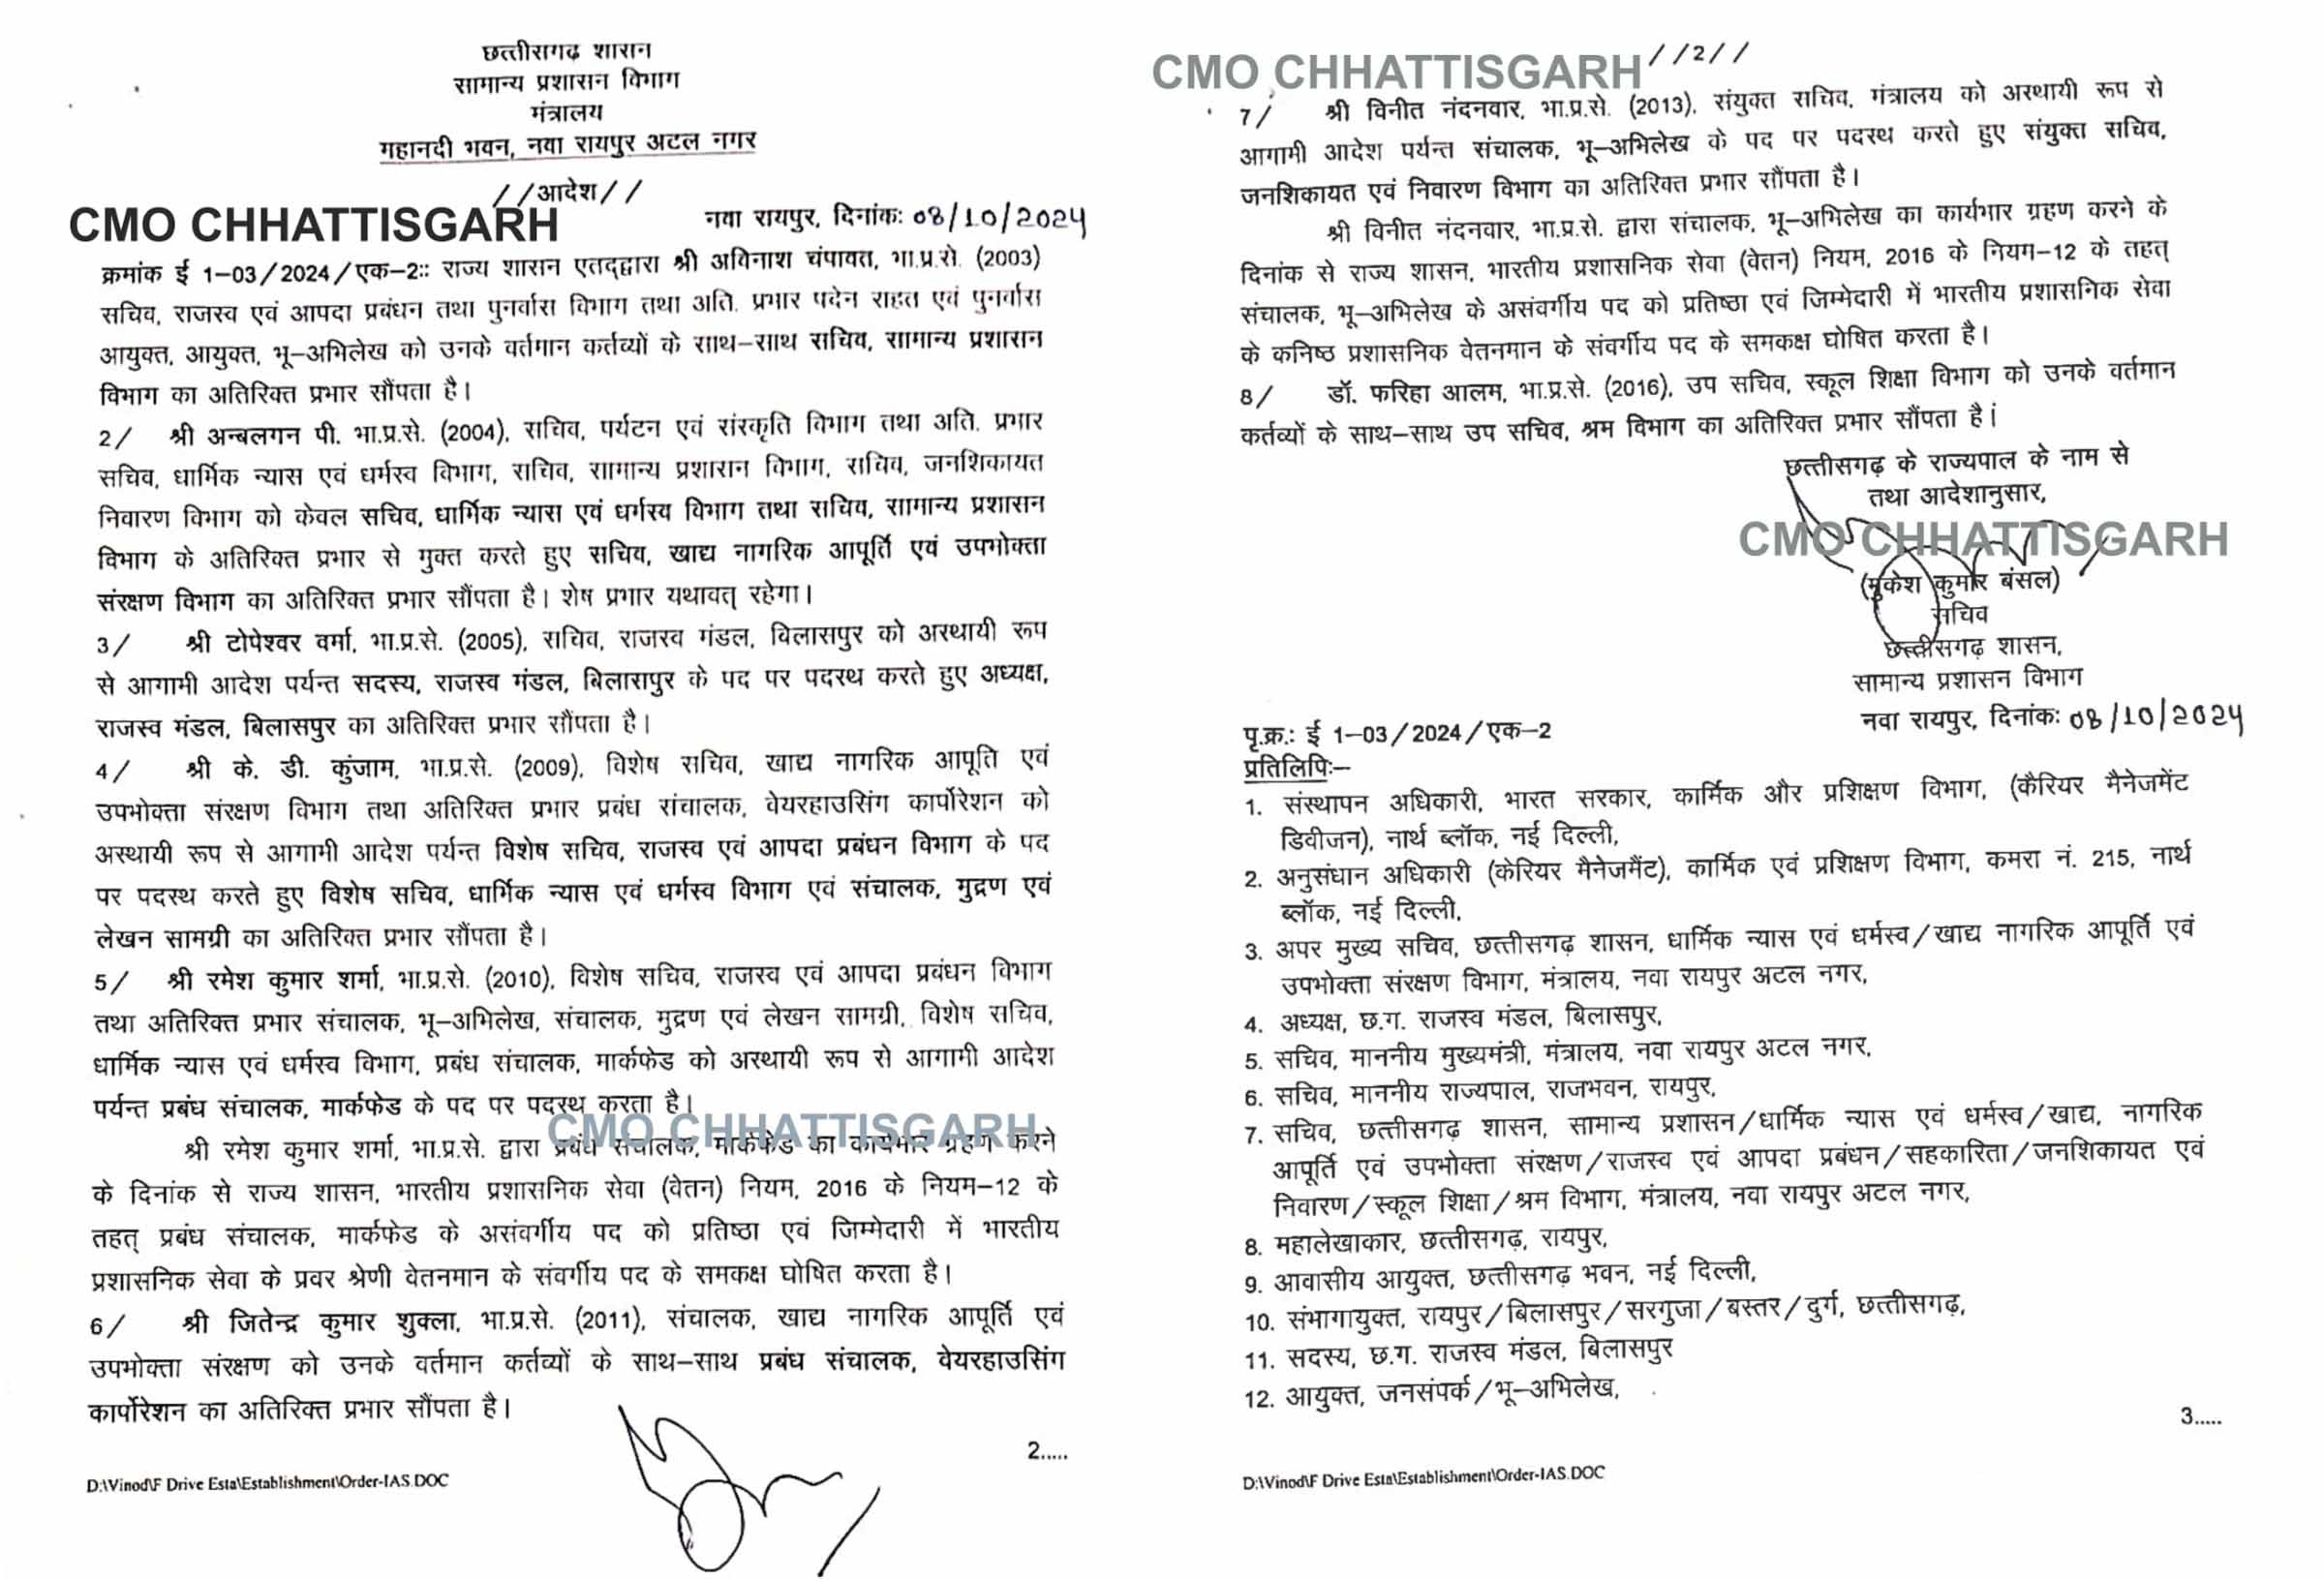 छत्तीसगढ़ शासन
सामान्य प्रशासन विभाग
मंत्रालय
महानदी भवन, नवा रायपुर अटल नगर
//आदेश//
CMO CHHATTISGARH
नवा रायपुर, दिनांक: 08/10/2024
क्रमांक ई 1-03/2024/एक-2:: राज्य शासन एतद्द्वारा श्री अविनाश चंपावत, भा.प्र.से. (2003)
सचिव, राजस्व एवं आपदा प्रबंधन तथा पुनर्वास विभाग तथा अति. प्रभार पदेन राहत एवं पुनर्वास
आयुक्त, आयुक्त, भू-अभिलेख को उनके वर्तमान कर्तव्यों के साथ-साथ सचिव, सामान्य प्रशासन
विभाग का अतिरिक्त प्रभार सौंपता है।
2/ श्री अन्बलगन पी. भा.प्र.से. (2004), सचिव, पर्यटन एवं संस्कृति विभाग तथा अति. प्रभार
सचिव, धार्मिक न्यास एवं धर्मस्व विभाग, सचिव, सामान्य प्रशासन विभाग, सचिव, जनशिकायत
निवारण विभाग को केवल सचिव, धार्मिक न्यास एवं धर्मस्व विभाग तथा सचिव, सामान्य प्रशासन
विभाग के अतिरिक्त प्रभार से मुक्त करते हुए सचिव, खाद्य नागरिक आपूर्ति एवं उपभोक्ता
संरक्षण विभाग का अतिरिक्त प्रभार सौंपता है। शेष प्रभार यथावत् रहेगा।
3/ श्री टोपेश्वर वर्मा, भा.प्र.से. (2005), सचिव, राजस्व मंडल, बिलासपुर को अस्थायी रूप
से आगामी आदेश पर्यन्त सदस्य, राजस्व मंडल, बिलासपुर के पद पर पदस्थ करते हुए अध्यक्ष,
राजस्व मंडल, बिलासपुर का अतिरिक्त प्रभार सौंपता है।
4/ श्री के. डी. कुंजाम, भा.प्र.से. (2009), विशेष सचिव, खाद्य नागरिक आपूति एवं
उपभोक्ता संरक्षण विभाग तथा अतिरिक्त प्रभार प्रबंध संचालक, वेयरहाउसिंग कार्पोरेशन को
अस्थायी रूप से आगामी आदेश पर्यन्त विशेष सचिव, राजस्व एवं आपदा प्रबंधन विभाग के पद
पर पदस्थ करते हुए विशेष सचिव, धार्मिक न्यास एवं धर्मस्व विभाग एवं संचालक, मुद्रण एवं
लेखन सामग्री का अतिरिक्त प्रभार सौंपता है।
5/ श्री रमेश कुमार शर्मा, भा.प्र.से. (2010), विशेष सचिव, राजस्व एवं आपदा प्रबंधन विभाग
तथा अतिरिक्त प्रभार संचालक, भू-अभिलेख, संचालक, मुद्रण एवं लेखन सामग्री, विशेष सचिव,
धार्मिक न्यास एवं धर्मस्व विभाग, प्रबंध संचालक, मार्कफेड को अस्थायी रूप से आगामी आदेश
पर्यन्त प्रबंध संचालक, मार्कफेड के पद पर पदस्थ करता है।
CMO CHHATTISGARH
श्री रमेश कुमार शर्मा, भा.प्र.से. द्वारा प्रबंध संचालक, मार्कफेड का कार्यभार ग्रहण करने
के दिनांक से राज्य शासन, भारतीय प्रशासनिक सेवा (वेतन) नियम, 2016 के नियम-12 के
तहत् प्रबंध संचालक, मार्कफेड के असंवर्गीय पद को प्रतिष्ठा एवं जिम्मेदारी में भारतीय
प्रशासनिक सेवा के प्रवर श्रेणी वेतनमान के संवर्गीय पद के समकक्ष घोषित करता है।
6/ श्री जितेन्द्र कुमार शुक्ला, भा.प्र.से. (2011), संचालक, खाद्य नागरिक आपूर्ति एवं
उपभोक्ता संरक्षण को उनके वर्तमान कर्तव्यों के साथ-साथ प्रबंध संचालक, वेयरहाउसिंग
कार्पोरेशन का अतिरिक्त प्रभार सौंपता है।
2.....
D:\Vinod\F Drive Esta\Establishment\Order-IAS.DOC
CMO CHHATTISGARH
//2//
7/ श्री विनीत नंदनवार, भा.प्र.से. (2013), संयुक्त सचिव, मंत्रालय को अस्थायी रूप से
आगामी आदेश पर्यन्त संचालक, भू-अभिलेख के पद पर पदस्थ करते हुए संयुक्त सचिव,
जनशिकायत एवं निवारण विभाग का अतिरिक्त प्रभार सौंपता है।
श्री विनीत नंदनवार, भा.प्र.से. द्वारा संचालक, भू-अभिलेख का कार्यभार ग्रहण करने के
दिनांक से राज्य शासन, भारतीय प्रशासनिक सेवा (वेतन) नियम, 2016 के नियम-12 के तहत्
संचालक, भू-अभिलेख के असंवर्गीय पद को प्रतिष्ठा एवं जिम्मेदारी में भारतीय प्रशासनिक सेवा
के कनिष्ठ प्रशासनिक वेतनमान के संवर्गीय पद के समकक्ष घोषित करता है।
8/ डॉ. फरिहा आलम, भा.प्र.से. (2016), उप सचिव, स्कूल शिक्षा विभाग को उनके वर्तमान
कर्तव्यों के साथ-साथ उप सचिव, श्रम विभाग का अतिरिक्त प्रभार सौंपता है।
छत्तीसगढ़ के राज्यपाल के नाम से
तथा आदेशानुसार,
CMO CHHATTISGARH
(मुकेश कुमार बंसल)
सचिव
छत्तीसगढ़ शासन,
सामान्य प्रशासन विभाग
नवा रायपुर, दिनांक: 08/10/2024
पृ.क्र.: ई 1-03/2024/एक-2
प्रतिलिपि:-
1. संस्थापन अधिकारी, भारत सरकार, कार्मिक और प्रशिक्षण विभाग, (कैरियर मैनेजमेंट
डिवीजन), नार्थ ब्लॉक, नई दिल्ली,
2. अनुसंधान अधिकारी (केरियर मैनेजमैंट), कार्मिक एवं प्रशिक्षण विभाग, कमरा नं. 215, नार्थ
ब्लॉक, नई दिल्ली,
3. अपर मुख्य सचिव, छत्तीसगढ़ शासन, धार्मिक न्यास एवं धर्मस्व/खाद्य नागरिक आपूर्ति एवं
उपभोक्ता संरक्षण विभाग, मंत्रालय, नवा रायपुर अटल नगर,
4. अध्यक्ष, छ.ग. राजस्व मंडल, बिलासपुर,
5. सचिव, माननीय मुख्यमंत्री, मंत्रालय, नवा रायपुर अटल नगर,
6. सचिव, माननीय राज्यपाल, राजभवन, रायपुर,
7. सचिव, छत्तीसगढ़ शासन, सामान्य प्रशासन/धार्मिक न्यास एवं धर्मस्व/खाद्य, नागरिक
आपूर्ति एवं उपभोक्ता संरक्षण/राजस्व एवं आपदा प्रबंधन/सहकारिता/जनशिकायत एवं
निवारण/स्कूल शिक्षा/श्रम विभाग, मंत्रालय, नवा रायपुर अटल नगर,
8. महालेखाकार, छत्तीसगढ़, रायपुर,
9. आवासीय आयुक्त, छत्तीसगढ़ भवन, नई दिल्ली,
10. संभागायुक्त, रायपुर/बिलासपुर/सरगुजा/बस्तर/दुर्ग, छत्तीसगढ़,
11. सदस्य, छ.ग. राजस्व मंडल, बिलासपुर
12. आयुक्त, जनसंपर्क/भू-अभिलेख,
3.....
D:\Vinod\F Drive Esta\Establishment\Order-IAS.DOC